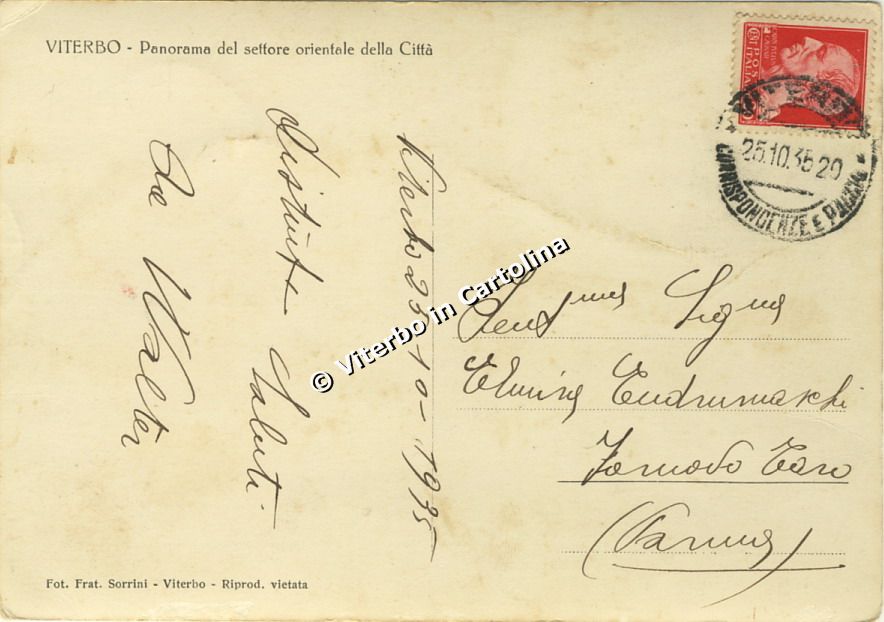 VITERBO - Panorama del settore orientale della Città
POSTE
ITALIANE
VITERBO
25.10.35 20
CORRISPONDENZE E PACCHI
Viterbo 25-10-1935
Distinti Saluti
Walter
Gent.ma Sig.na
Elmina
Fornovo Taro
(Parma)
© Viterbo in Cartolina
Fot. Frat. Sorrini - Viterbo - Riprod. vietata